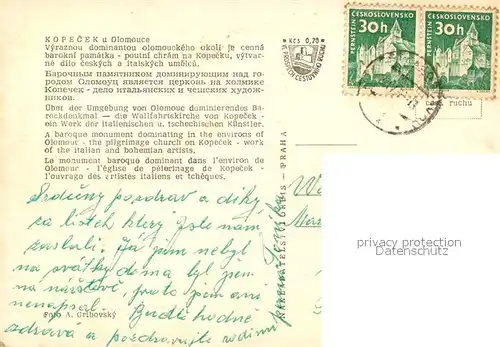 KOPEČEK u Olomouce
Výraznou dominantou olomouckého okolí je cenná
barokní památka - poutní chrám na Kopečku, výtvar-
né dílo českých a italských umělců.
Барочным памятником доминирующим над го-
родом Оломоуц является церковь на холмике
Копечек - дело итальянских и чешских худож-
ников.
Über der Umgebung von Olomouc dominierendes Ba-
rockdenkmal — die Wallfahrtskirche von Kopeček -
ein Werk der italienischen u. tschechischen Künstler.
A baroque monument dominating in the environs of
Olomouc - the pilgrimage church on Kopeček - work
of the italian and bohemian artists.
Le monument baroque dominant dans l'environ de
Olomouc - l'église de pèlerinage de Kopeček -
l'ouvrage des artistes italiens et tchèques.
Srdečný pozdrav a díky
za lístek který jste nám
zaslali. Já jsem nebyl
na svátky doma byl jsem
na návštěvě, proto jsem ani
nenapsal. Buďte hodně
zdrává a pozdravujte rodinu
Foto A. Gribovský
Kčs 0,70
ORBIS - PRAHA
ČESKOSLOVENSKO
PERNŠTEJN
30h
ČESKOSLOVENSKO
PERNŠTEJN
30h
ruchu
privacy protection
Datenschutz